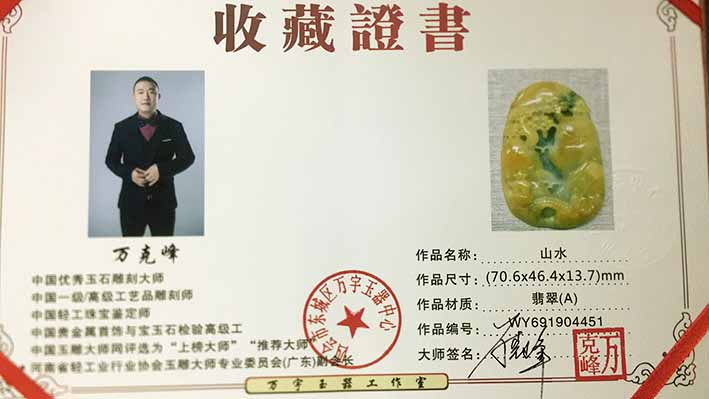 收藏證書
万克峰
中国优秀玉石雕刻大师
中国一级/高级工艺品雕刻师
中国轻工珠宝鉴定师
中国贵金属首饰与宝玉石检验高级工
中国玉雕大师网评选为“上榜大师”“推荐大师”
河南省轻工业行业协会玉雕大师专业委员会(广东)副会长
作品名称: 山水
作品尺寸: (70.6x46.4x13.7)mm
作品材质: 翡翠(A)
作品编号: WY691904451
大师签名:
万克峰
会市东城区万宇玉器中心
万宇玉器工作室